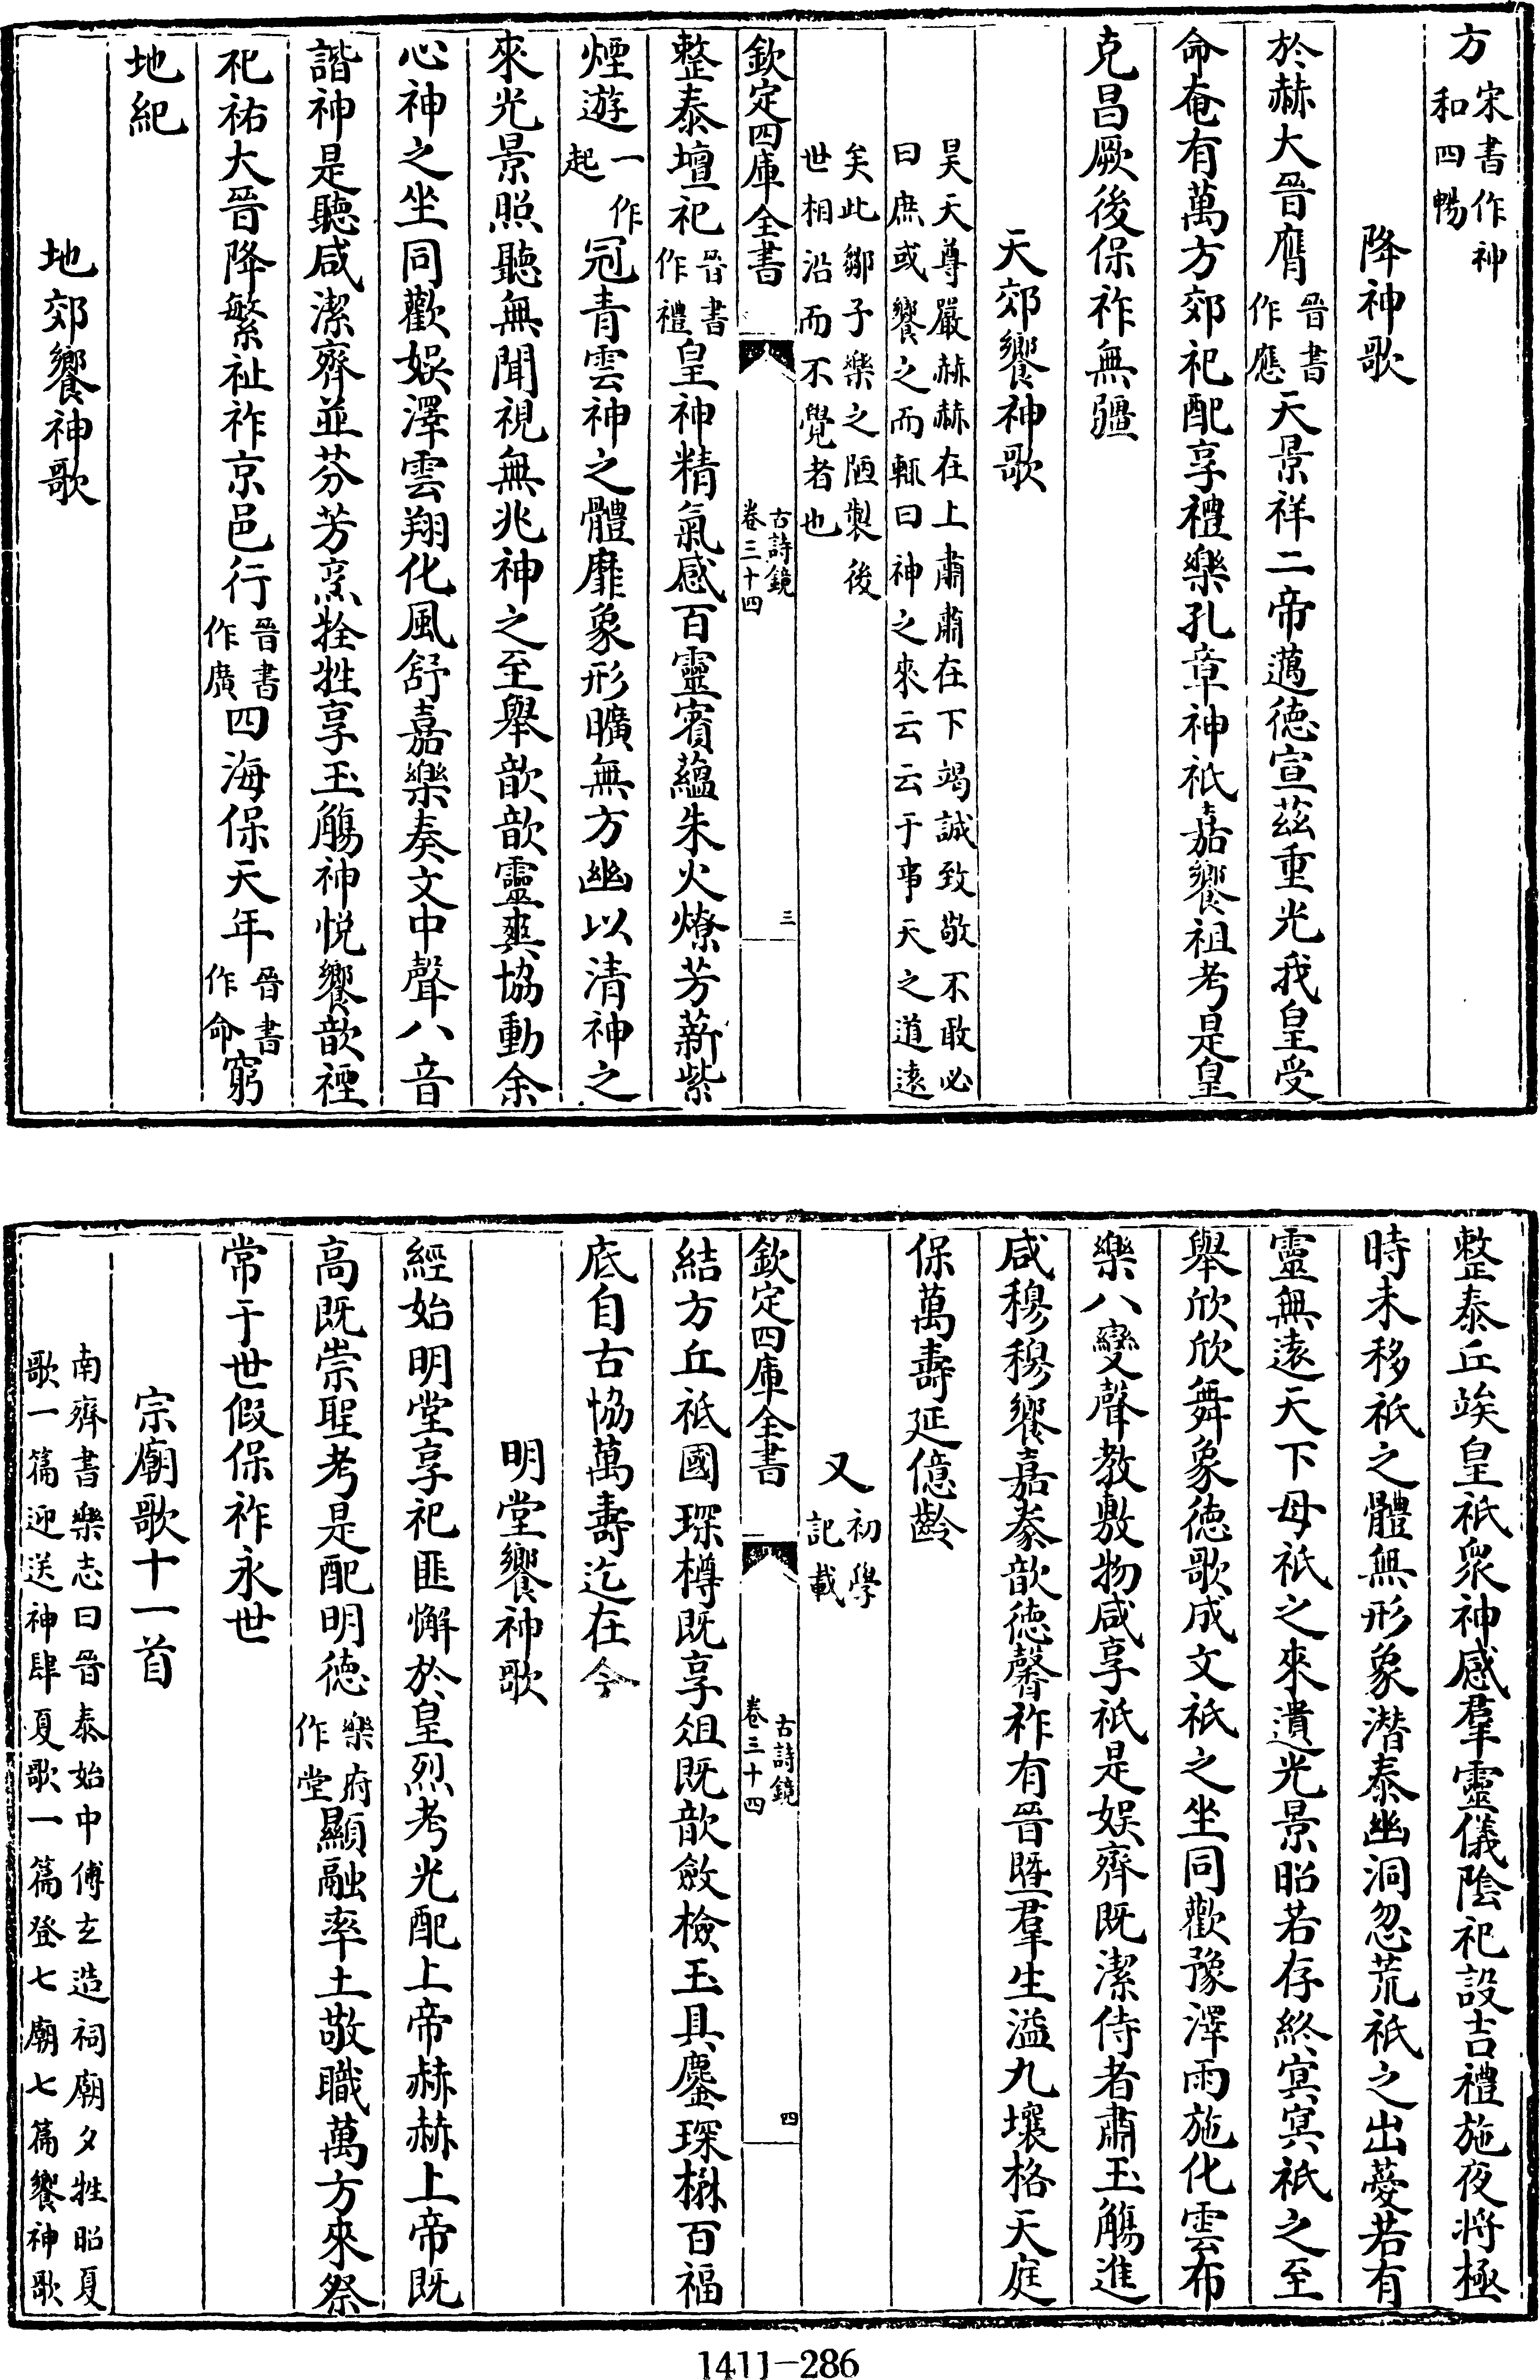 方宋書作神和四暢
降神歌
於赫大晉膺晉書作應天景祥二帝邁德宣茲重光我皇受
命奄有萬方郊祀配享禮樂孔章神祇嘉饗祖考是皇
克昌厥後保祚無疆
天郊饗神歌
昊天尊嚴赫赫在上肅肅在下竭誠致敬不敢必
曰庶或饗之而輒曰神之來云云于事天之道遠
矣此鄒子樂之陋製後
世相沿而不覺者也
欽定四庫全書 古詩鏡卷三十四 三
整泰壇祀晉書作禮皇神精氣感百靈賓蘊朱火燎芳薪紫
煙遊一作起冠青雲神之體靡象形曠無方幽以清神之
來光景照聽無聞視無兆神之至舉歆歆靈爽協動余
心神之坐同歡娛澤雲翔化風舒嘉樂奏文中聲八音
諧神是聽咸潔齊並芬芳烹牷牲享玉觴神悅饗歆禋
祀祐大晉降繁祉祚京邑行晉書作廣四海保天年晉書作命窮
地紀
地郊饗神歌
整泰丘竢皇祇眾神感羣靈儀陰祀設吉禮施夜將極
時未移祇之體無形象潛泰幽洞忽荒祇之出薆若有
靈無遠天下母祇之來遺光景昭若存終冥冥祇之至
舉欣欣舞象德歌成文祇之坐同歡豫澤雨施化雲布
樂八變聲教敷物咸享祇是娛齊既潔侍者肅玉觴進
咸穆穆饗嘉豢歆德馨祚有晉暨羣生溢九壤格天庭
保萬壽延億齡
又初學記載
欽定四庫全書 古詩鏡卷三十四 四
結方丘祇國琛樽既享俎既歆斂檢玉具鏖琛樹百福
底自古協萬壽迄在今
明堂饗神歌
經始明堂享祀匪懈於皇烈考光配上帝赫赫上帝既
高既崇聖考是配明德樂府作堂顯融率土敬職萬方來祭
常于世假保祚永世
宗廟歌十一首
南齊書樂志曰晉泰始中傅玄造祠廟夕牲昭夏
歌一篇迎送神肆夏歌一篇登七廟七篇饗神歌
1411—286